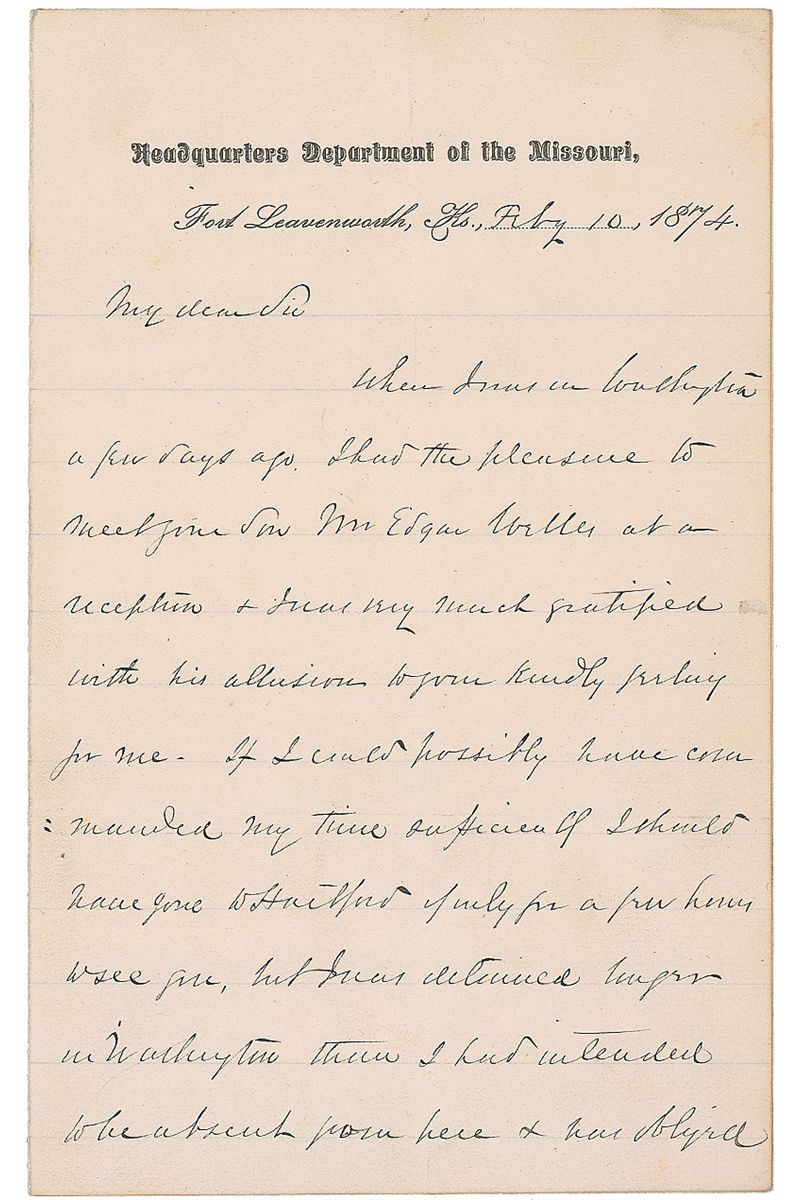 Headquarters Department of the Missouri,
Fort Leavenworth, Ks., Feby 10, 1874.
My dear Sir
When I was in Washington
a few days ago. I had the pleasure to
meet your Son Mr Edgar Welles at a
reception & I was very much gratified
with his allusion to your kindly feeling
for me - If I could possibly have com
= manded my time sufficiently I should
have gone to Hartford if only for a few hours
to see you, but I was detained longer
in Washington than I had intended
to be absent from here & was obliged